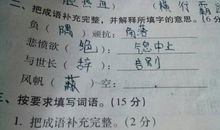 二、把成语补充完整,并解释所填字的意思。(6分
负(隅)顽抗:角落
悲愤欲(绝):气息中止
与世长(辞):告别
风帆(蔽)空:
三、按要求填写词语。(15分)
1.把成语补充完整。(2分)